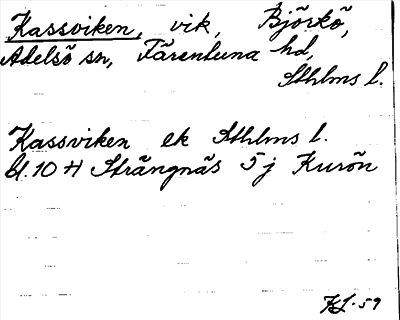 Kassviken, vik, Björkö,
Adelsö sn, Färentuna hd,
Sthlms l.
Kassviken ek Sthlms l.
bl. 10 H Strängnäs 5 j Kurön
-59